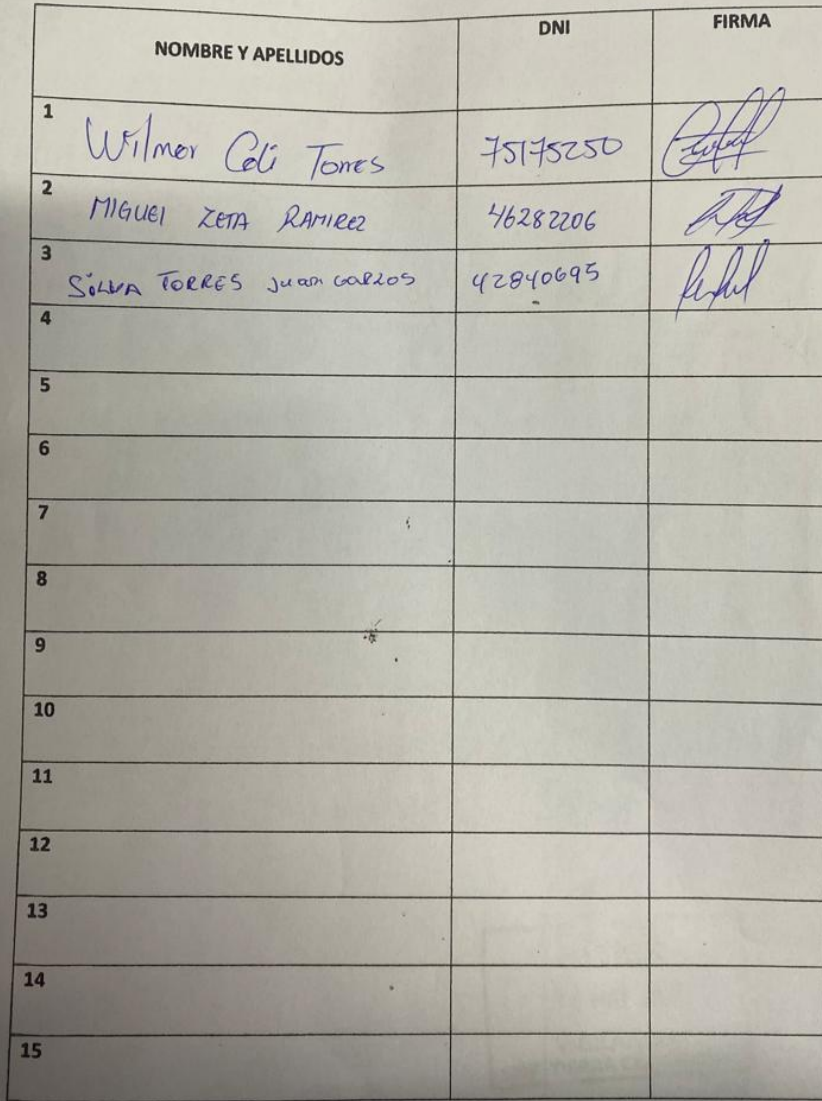 NOMBRE Y APELLIDOS DNI FIRMA
1 Wilmer Torres 75175250
2 MIGUEl ZETA RAMIREZ 46282206
3 SiLVA TORRES Juan CaRLOS 42840695
4
5
6
7
8
9
10
11
12
13
14
15